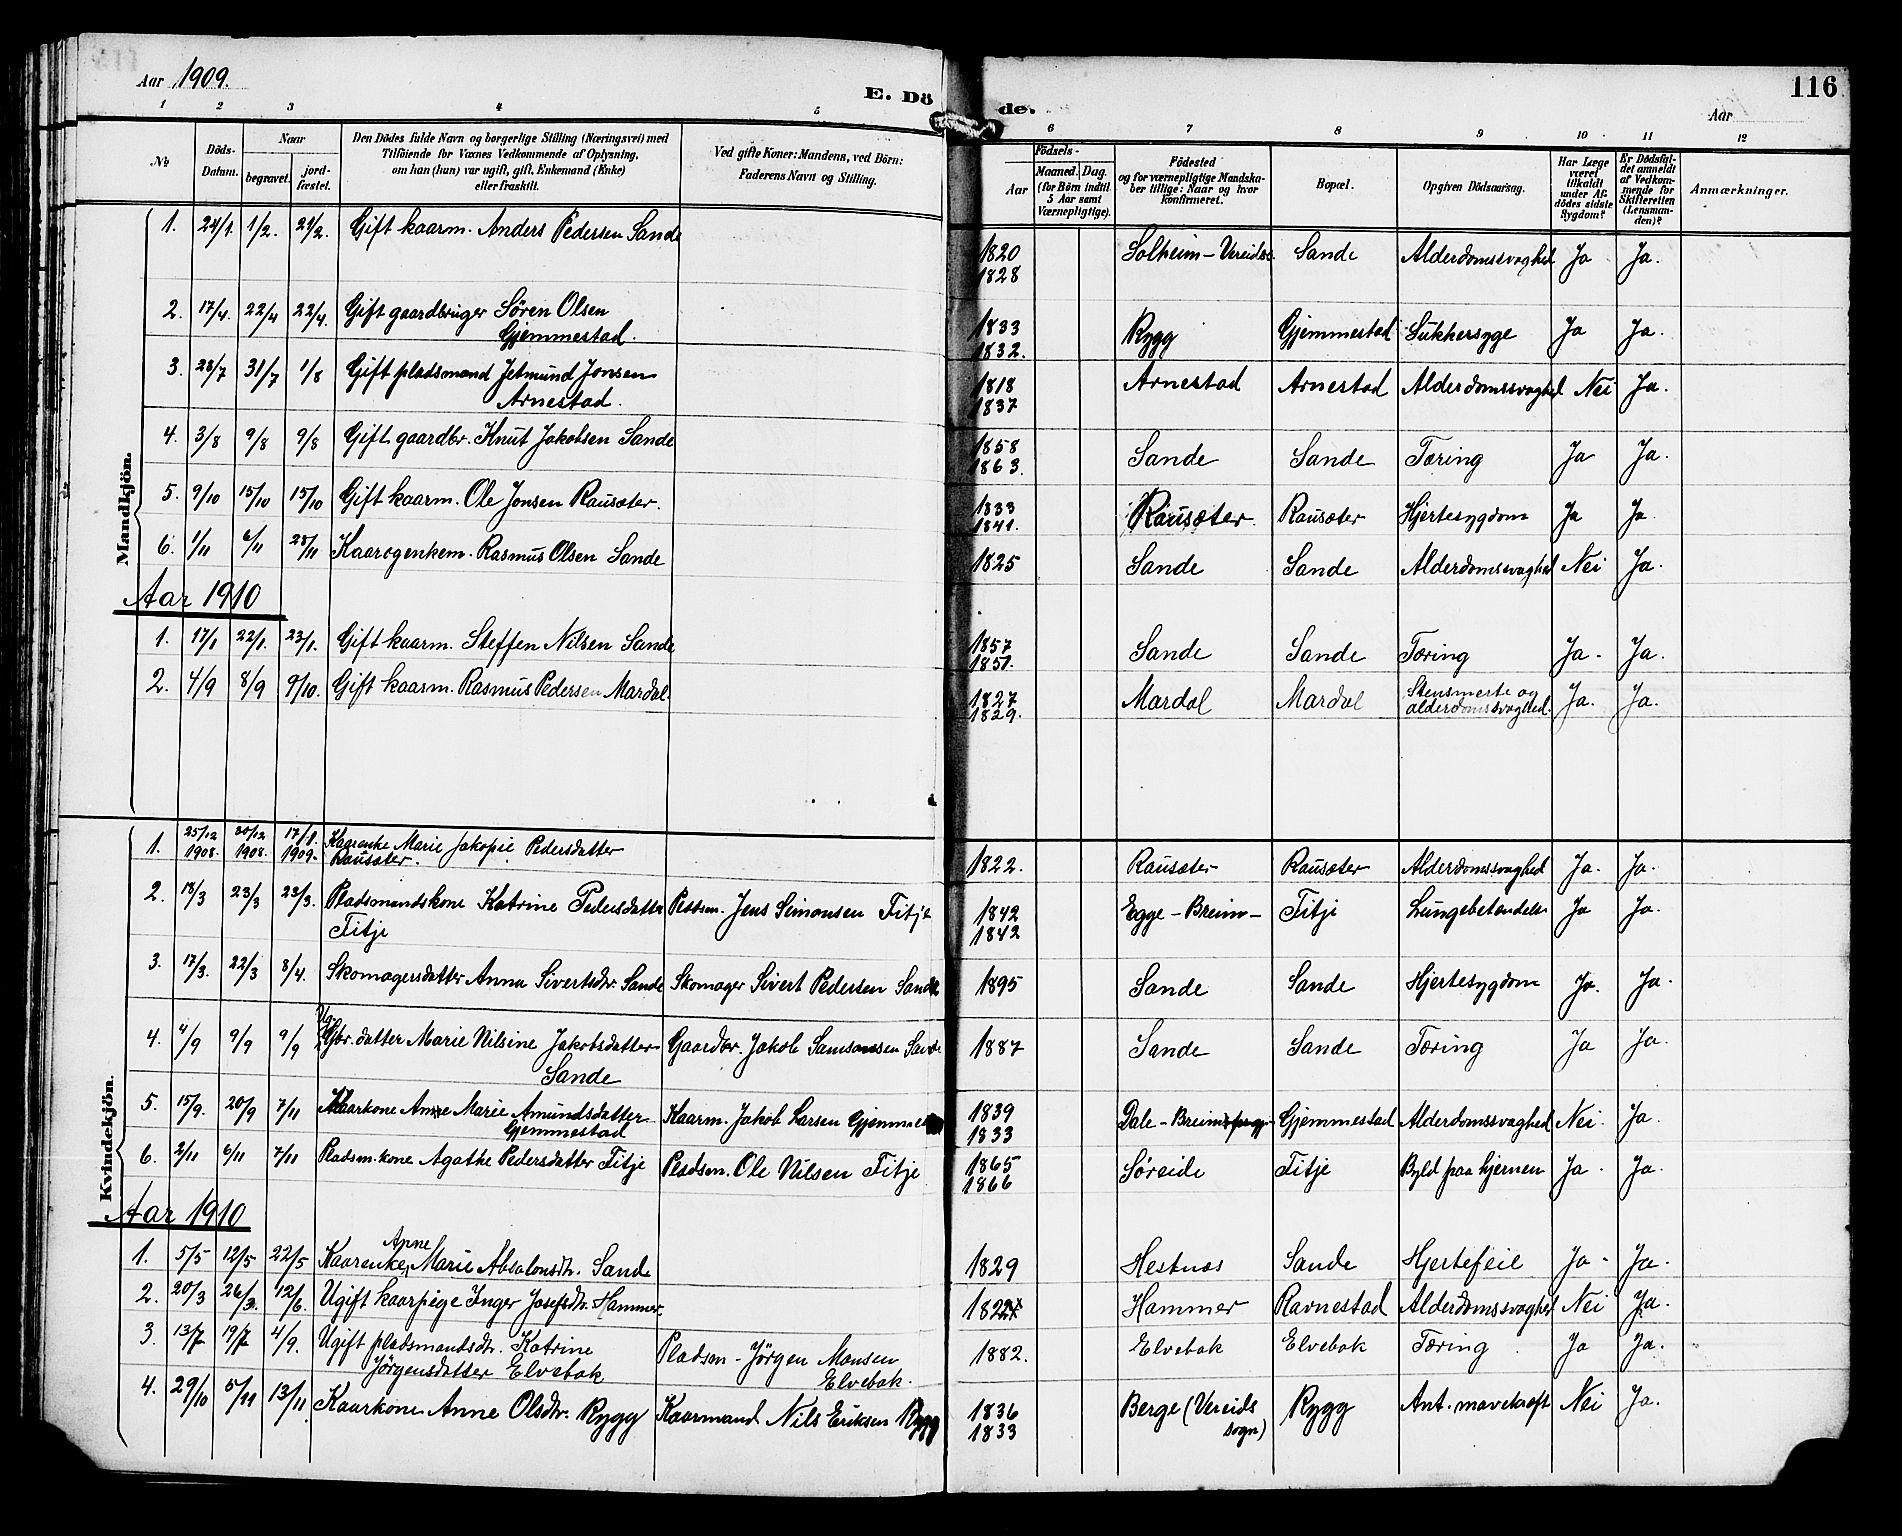 Aar 1909.
E. Döde.
Aar
116
1 2 3 4 5 6 7 8 9 10 11 12
No
Döds-Datum.
Naar
begravet.
jordfæstet.
Den Dödes fulde Navn og borgerlige Stilling (Næringsvei) med
Tilföiende for Voxnes Vedkommende af Oplysning,
om han (hun) var ugift, gift, Enkemand (Enke)
eller fraskilt.
Ved gifte Koner: Mandens, ved Börn:
Faderens Navn og Stilling.
Födsels-
Aar
Maaned. Dag.
(for Börn indtil
5 Aar samt
Værnepligtige).
Födested
og for værnepligtige Mandskaber tillige: Naar og hvor
konfirmeret.
Bopæl.
Opgiven Dödsaarsag.
Har Læge
været
tilkaldt
under Afdödes sidste
Sygdom?
Er Dödsfaldet anmeldt
af Vedkommende for
Skifteretten
(Lensmanden)?
Anmærkninger.
Mandkjön.
1. 24/1. 1/2. 21/2. Gift kaarm. Anders Pedersen Sande 1820 Solheim - Vereidse Sande Alderdomssvaghed Ja Ja.
1828
2. 17/4. 22/4 22/4. Gift gaardbruger Sören Olsen 1833 Rygg Gjemmestad Sukkersyge Ja Ja.
Gjemmestad. 1832.
3. 28/7 31/7 1/8 Gift pladsmand Jetmund Jonsen 1818 Arnestad Arnestad Alderdomssvaghed Nei Ja.
Arnestad. 1837
4. 3/8 9/8 9/8 Gift gaardbr. Knut Jakobsen Sande 1858 Sande Sande Tæring Ja Ja.
1863.
5. 9/10 15/10 15/10 Gift kaarm. Ole Jonsen Rausæter. 1833 Rausæter. Rausæter Hjertesygdom Ja Ja
1841.
6. 1/11 6/11 28/11 Kaarogenkem. Rasmus Olsen Sande 1825 Sande Sande Alderdomssvaghed Nei Ja.
Aar 1910
1. 17/1 22/1. 23/1. Gift kaarm. Steffen Nilsen Sande 1857 Sande Sande Tæring Ja. Ja.
1851.
2. 4/9 8/9 9/10. Gift kaarm. Rasmus Pedersen Mardal 1827 Mardal Mardal Stensmerte og Ja. Ja.
1829. alderdomssvaghed.
Kvindekjön.
1. 25/12 1908. 30/12 1908. 17/1. 1909. Kaarenke Marie Jakopie Pedersdatter 1822. Rausæter Rausæter Alderdomssvaghed Ja. Ja.
Rausæter.
2. 18/3 23/3 23/3. Pladsmandskone Katrine Pedersdatter Pladsm. Jens Simonsen Fitje 1842 Egge - Breim - Fitje Lungebetændelse Ja Ja.
Fitje 1842
3. 17/3. 22/3 8/4. Skomagersdatter Anna Sivertsdr. Sande Skomager Sivert Pedersen Sande 1895 Sande Sande Hjertesygdom Ja. Ja.
4. 4/9 9/9 9/9 Ug. Gbr. datter Marie Nilsine Jakobsdatter Gaardbr. Jakob Samsonsen Sande 1887 Sande Sande Tæring Ja Ja.
Sande
5. 15/9. 20/9 7/11 Kaarkone Anne Marie Amundsdatter Kaarm. Jakob Larsen Gjemme 1839 Dale - Breim Gjemmestad Alderdomssvaghed Nei. Ja
Gjemmestad 1833
6. 2/11 6/11 7/11 Pladsm. kone Agathe Pedersdatter Fitje Pladsm. Ole Nilsen Fitje 1865 Søreide Fitje Byld paa hjernen Ja. Ja.
1866
Aar 1910
1. 5/5 12/5 22/5 Kaarenke Anne Marie Absalonsdr. Sande 1829 Hestnæs Sande Hjertefeil Ja. Ja.
2. 20/3 26/3. 12/6. Ugift kaarpige Inger Josefsdr. Hammer. Hammer Ravnestad Alderdomssvaghed Nei Ja.
3. 13/7 19/7 4/9. Ugift pladsmandsdr. Katrine Pladsm - Jörgen Monsen 1882. Elvebak Elvebak Tæring Ja Ja.
Jörgensdatter Elvebak Elvebak.
4. 29/10 5/11 13/11. Kaarkone Anne Olsdtr. Rygg Kaarmand Nils Eriksen Rygg 1836 Berge (Vereids Rygg Ant. mavekræft Nei Ja.
1833 sogn)